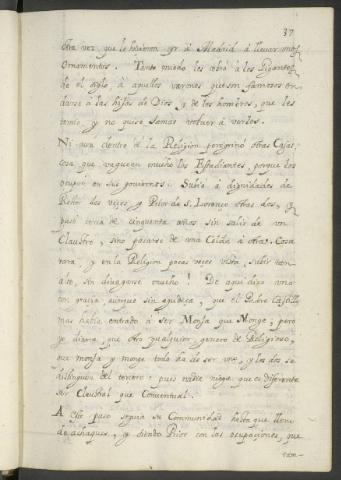 37
otra vez que le hizieron yr á Madrid á llevar unos
Ornamentos. Tanto miedo les cobró á los Gigantes
de el siglo, á aquellos varones que son famosos en
darse á las hijas de Dios, y de los hombres, que les
temio, y no quiso jamas volver á verlos.
Ni aun dentro de la Religion peregrinó otras Casas,
cosa que vaguean mucho los Estudiantes, porque los
ocupan en sus goviernos. Subió á dignidades de
Retor dos vezes, y Prior de S. Lorenzo otras dos, y
pasó cerca de cinquenta años sin salir de un
Claustro, sino pasarse de una Celda á otra. Cosa
rara, y en la Religion pocas vezes vista, subir tan
alto, sin alargarse mucho! De aqui dijo uno
con gracia, aunque sin agudeza, que el Padre Castillo
mas havia entrado á ser Monja que Monge; pero
yo dijera, que otro qualquier genero de Religioso,
que monja y monge todo ha de ser uno, y los dos se
distinguen del tercero: pues nadie niega que es diferente
ser Claustral que Conventual.
A este paso seguia su Comunidad hasta que lleno
de achaques, y siendo Prior con las ocupaciones, que
tam-